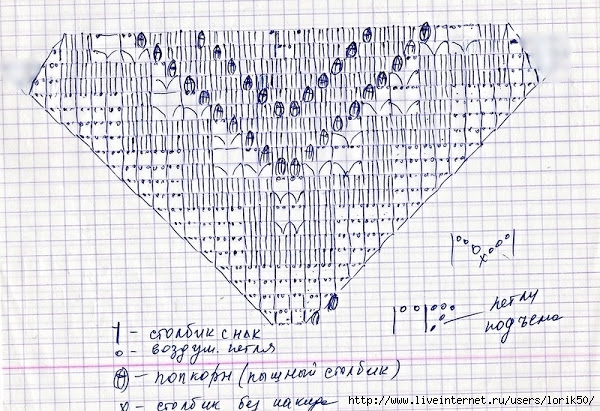 петли
подъема
† - столбик с нак
о - воздуш. петля
- попкорн (пышный столбик)
x - столбик без накида
http://www.liveinternet.ru/users/lorik50/